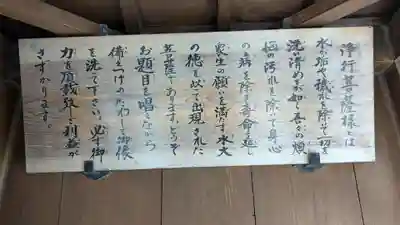 浄行菩薩様とは
水が垢や穢れを除いて一切を
洗い清めるが如く吾々の煩
悩の汚れを除いて身心
の病を除き寿命を延し
衆生の願いを満たす水大
の徳を以て出現された
菩薩であります。どうぞ
お題目を唱えながら
備えつけのたわしで御像
を洗って下さい。必ず御
力を頂戴致し利益が
さずかります。